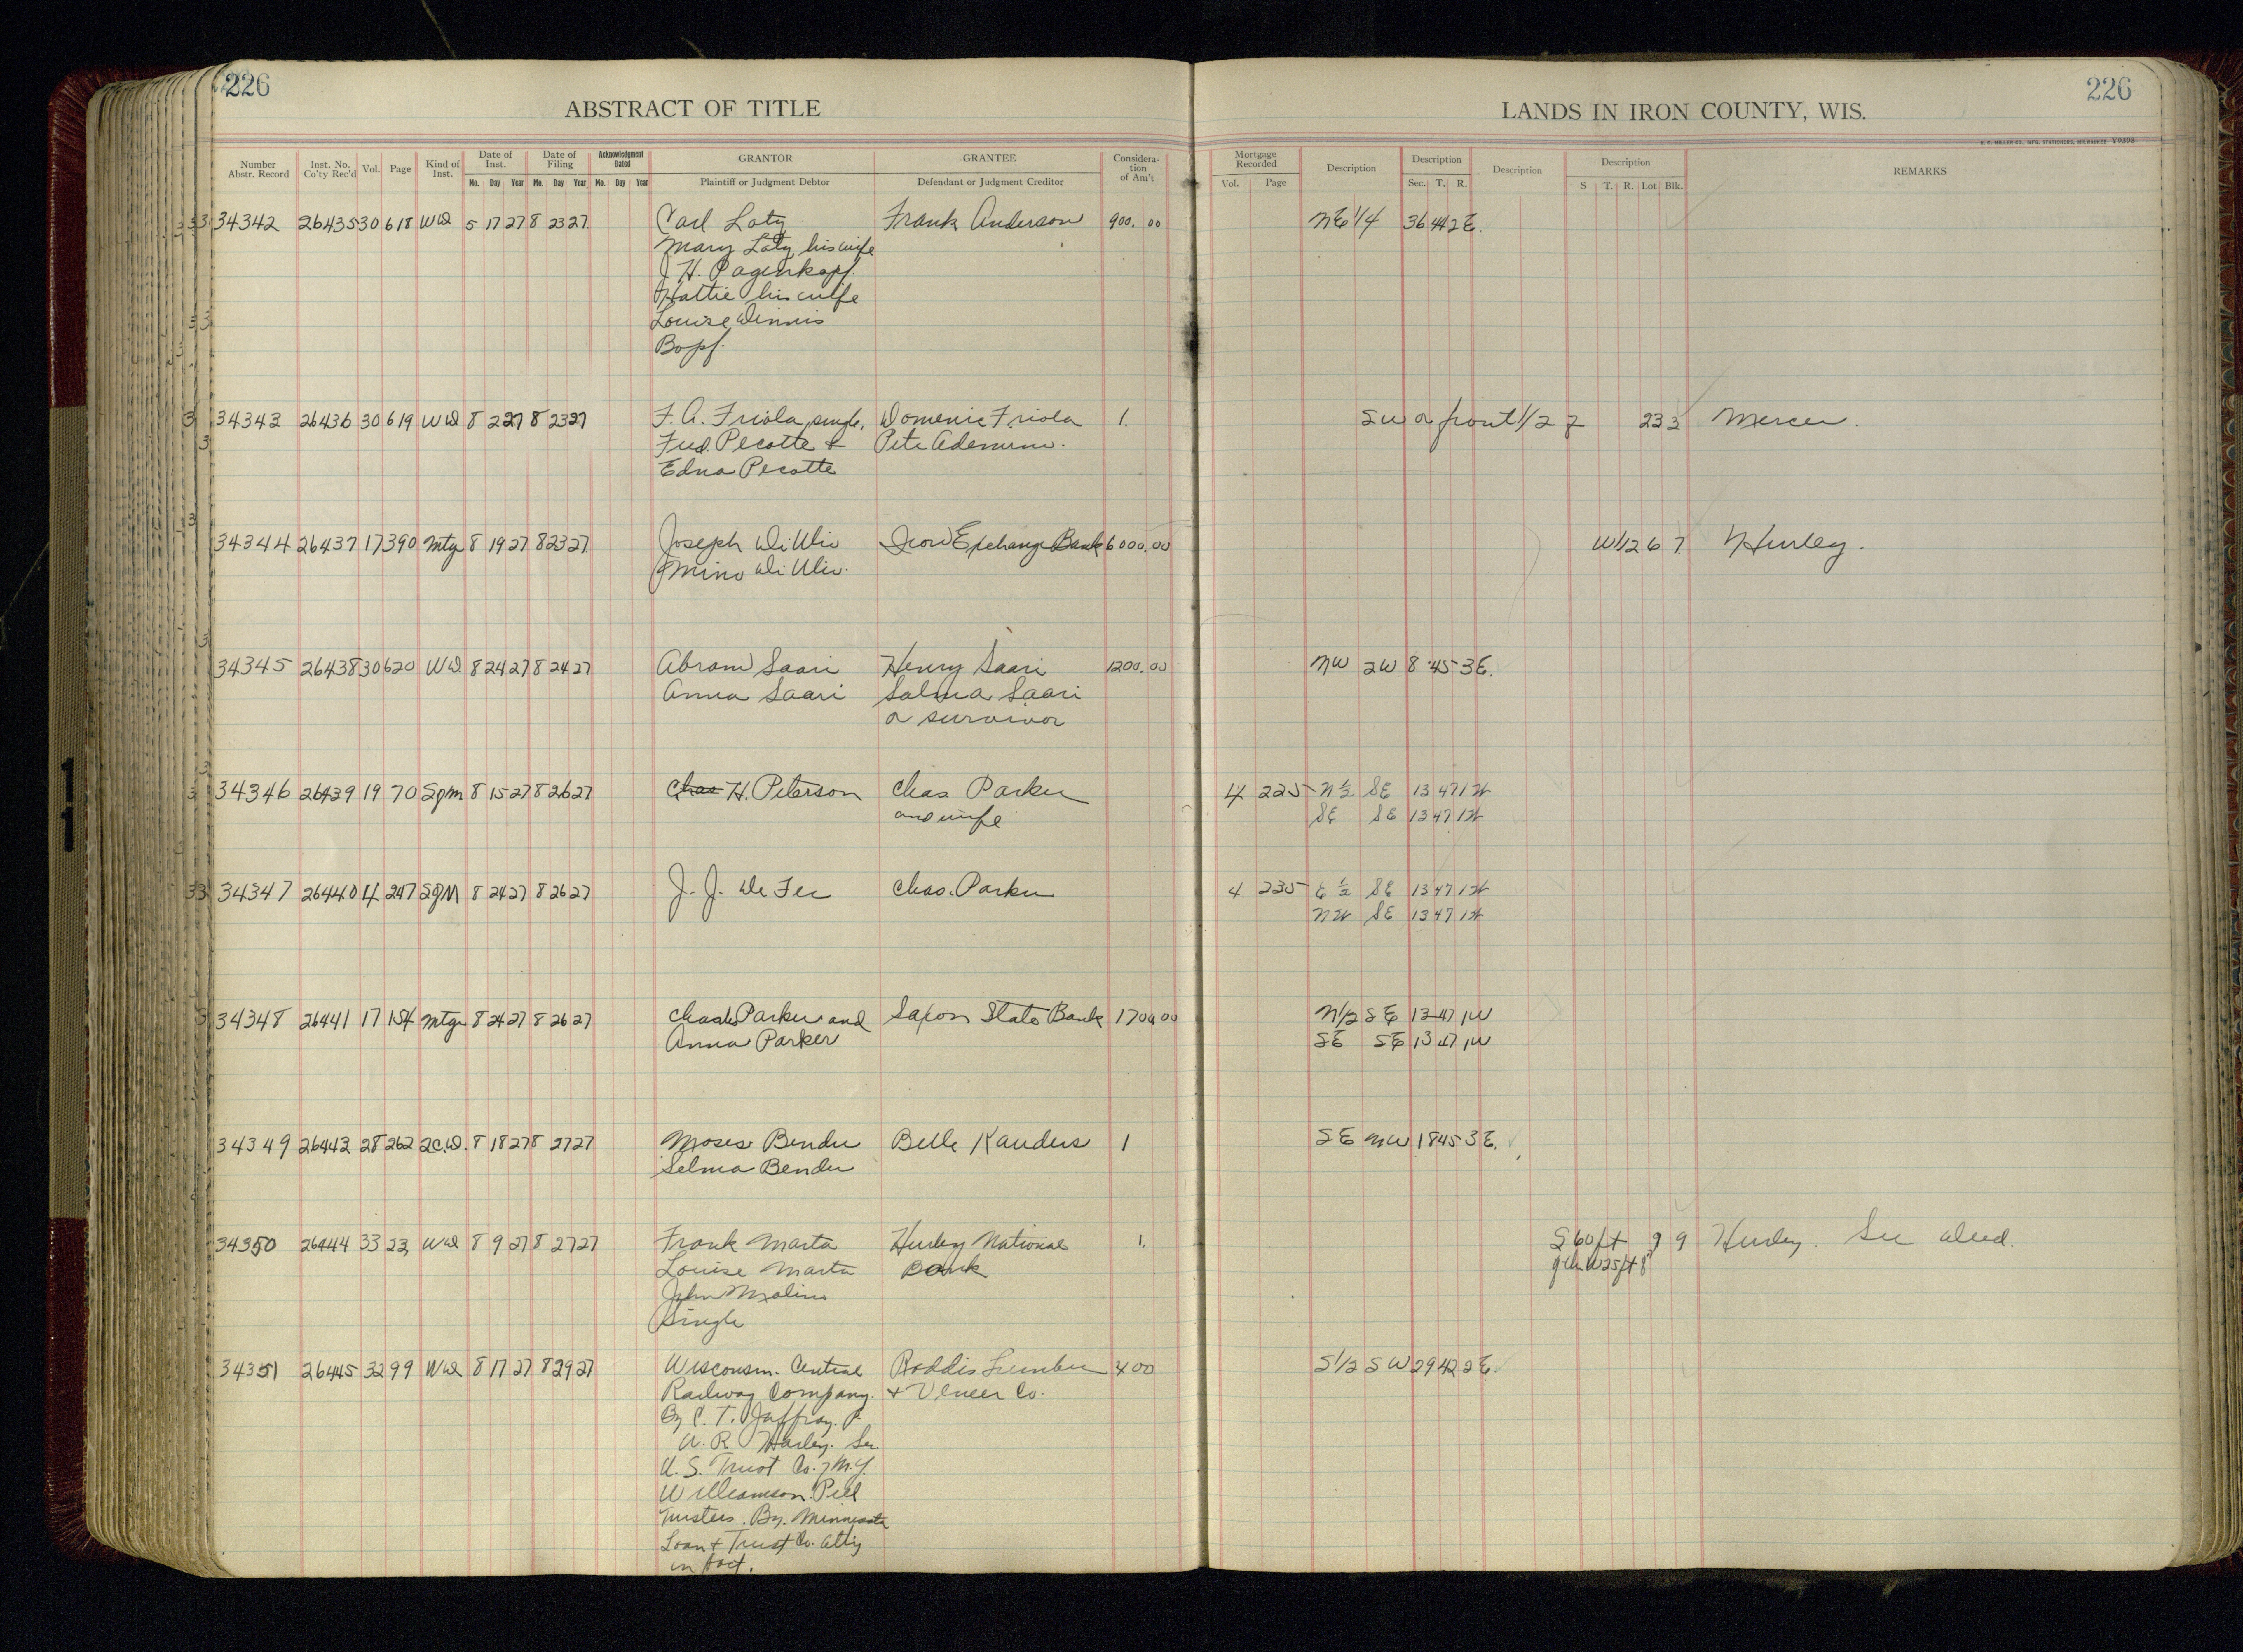 226
226
ABSTRACT OF TITLE
LANDS IN IRON COUNTY, WIS.
H. C. MILLER CO., MFG. STATIONERS, MILWAUKEE V9398
Number Abstr. Record | Inst. No. Co'ty Rec'd | Vol. | Page | Kind of Inst. | Date of Inst. Mo. Day Year | Date of Filing Mo. Day Year | Acknowledgment Dated Mo. Day Year | GRANTOR Plaintiff or Judgment Debtor | GRANTEE Defendant or Judgment Creditor | Considera-tion of Am't | Mortgage Recorded Vol. Page | Description | Description Sec. T. R. | Description | Description S T. R. Lot Blk. | REMARKS
34342 26435 30 618 WD 5 17 27 8 23 27 Carl Laty Frank Anderson 900.00 NE 1/4 36 44 2E.
Mary Laty his wife
J. H. Pagenkopf.
Hattie his wife
Louise
Bopf.
34343 26436 30 619 WD 8 2 27 8 23 27 F. A. Friola, single, Domenic Friola 1. SW a front 1/2 7 23 3 Mercer.
Fred Pecotte & Pete
Edna Pecotte
34344 26437 17 390 Mtg 8 19 27 8 23 27 Joseph Iron Exchange Bank 6000.00 W 1/2 6 7 Hurley.
34345 26438 30 620 WD 8 24 27 8 24 27 Abram Saari Henry Saari 1200.00 NW 2W 8 45 3E.
Anna Saari Salma Saari
or survivor
34346 26439 19 70 Sgm 8 15 27 8 26 27 Chas H. Peterson Chas Parker 4 225 N 1/2 SE 13 47 1W
and wife SE SE 13 47 1W
34347 26440 4 247 SgM 8 24 27 8 26 27 J. J. De Fer Chas. Parker 4 235 E 1/2 SE 13 47 1W
NW SE 13 47 1W
34348 26441 17 154 Mtg 8 24 27 8 26 27 Chas Parker and Saxon State Bank 1700.00 N 1/2 SE 13 47 1W
Anna Parker SE SE 13 47 1W
34349 26443 28 262 2C.D. 8 18 27 8 27 27 Moses Bender Belle Kanders 1 SE NW 18 45 3E.
Selma Bender
34350 26444 33 23 WD 8 9 27 8 27 27 Frank Marta Hurley National 1. S 60 ft 9 9 Hurley. See deed.
Louise Marta Bank W 25 ft 8
John
Single
34351 26445 32 99 WD 8 17 27 8 29 27 Wisconsin Central Roddis Lumber 400 S 1/2 SW 29 42 2E.
Railway Company. & Veneer Co.
By C. T. Jaffray. P.
A. R. Harley. Sec.
U.S. Trust Co. N.Y.
Williamson Pell
Trustees. By. Minnesota
Loan & Trust Co. atty
in fact.